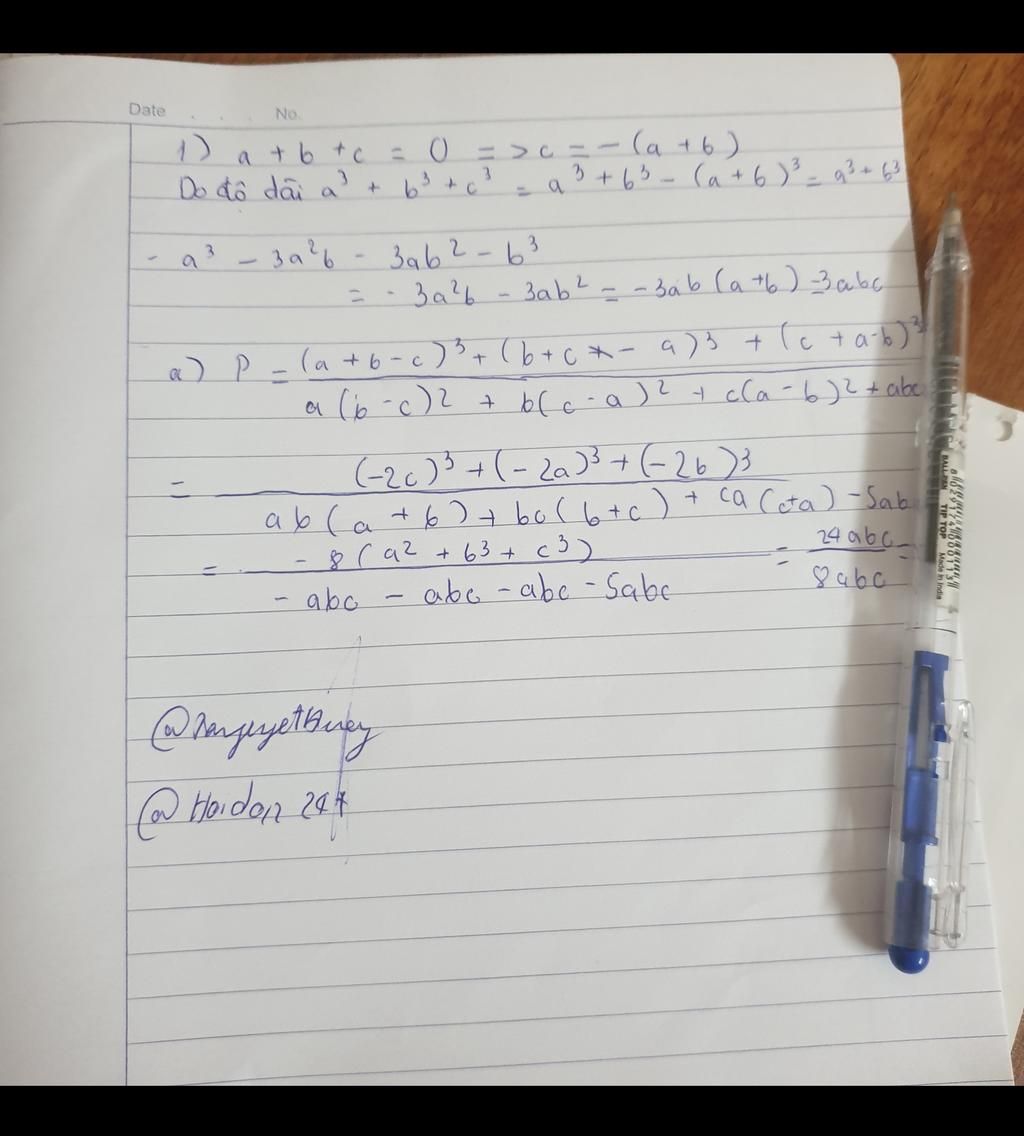 Date No.
1) a + b + c = 0 => c = -(a + b)
Do đô dãi a³ + b³ + c³ = a³ + b³ - (a + b)³ = a³ + b³
- a³ - 3a²b - 3ab² - b³
= - 3a²b - 3ab² = -3ab (a + b) = 3abc
a) P = (a + b - c)³ + (b + c - a)³ + (c + a - b)³
a(b - c)2 + b(c - a)2 + c(a - b)2 + abc
= (-2c)³ + (-2a)³ + (-2b)3
ab(a + b) + bc(b + c) + ca(c + a) - 5ab
= - 8(a² + b³ + c³) = 24abc =
- abc - abc - abc - 5abc 8abc
@ Hoidap 247
BALL PEN TIP TOP Made in India